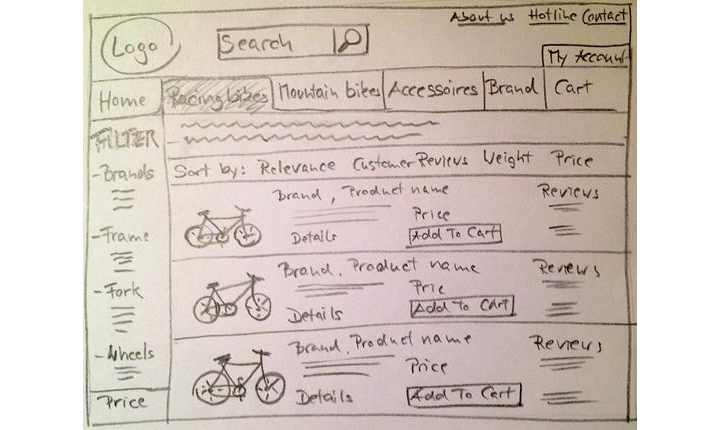 About us Hotline Contact
Logo
Search
My Account
Home Racing bikes Mountain bikes Accessoires Brand Cart
FILTER
Sort by: Relevance Customer Reviews Weight Price
-Brands
-Frame
-Fork
-Wheels
Price
Brand, Product name Reviews
Price
Details Add To Cart
Brand, Product name Reviews
Price
Details Add To Cart
Brand, Product name Reviews
Price
Details Add To Cart